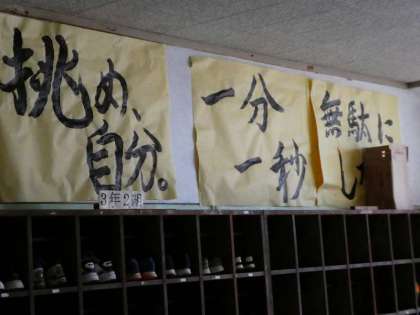 挑め、
自分。
3年2組
一分
一秒
無駄に
し